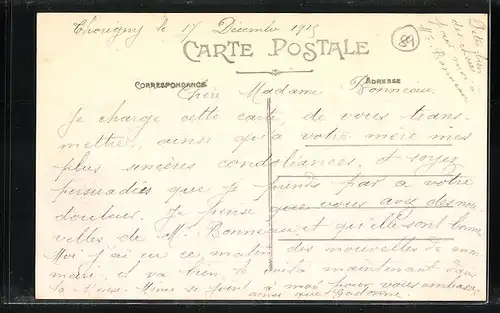 Thorigny le 17 Décembre 1915
CARTE POSTALE
89
CORRESPONDANCE
ADRESSE
Chère Madame Bonneau,
Je charge cette carte, de vous trans-
mettre, ainsi qu'à votre mère mes
plus sincères condoléances, et soyez
persuadée que je prends part a votre
douleur. Je pense que vous avez des nou
velles de Mr Bonneau et qu'elle sont bonne
Moi j'ai eu ce matin des nouvelles de mon
mari, il va bien, le voilà maintenant dans
la Mimi se joint à moi pour vous embrasser
ainsi que